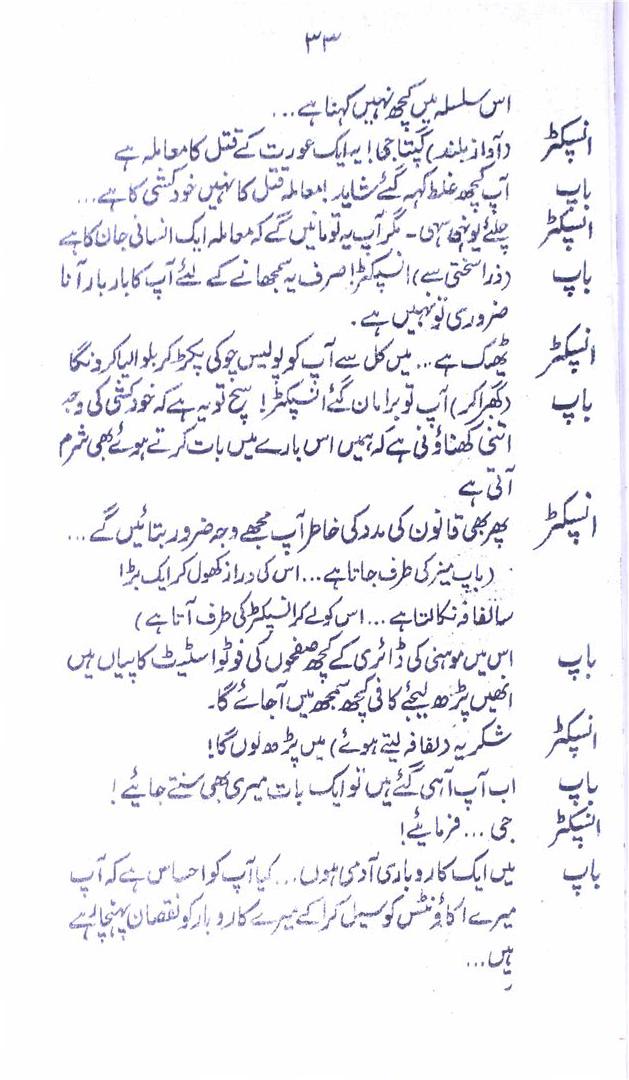 ۳۳
اس سلسلہ میں کچھ نہیں کہنا ہے...
انسپکٹر (آواز بلند) گپتا جی! یہ ایک عورت کے قتل کا معاملہ ہے
باپ آپ کچھ غلط کہہ گئے شاید! معاملہ قتل کا نہیں خودکشی کا ہے...
انسپکٹر چلئے یونہی سہی۔ مگر آپ یہ تو مانیں گے کہ معاملہ ایک انسانی جان کا ہے
باپ (ذرا سختی سے) انسپکٹر! صرف یہ سمجھانے کے لئے آپ کا بار بار آنا
ضروری تو نہیں ہے۔
انسپکٹر ٹھیک ہے... میں کل سے آپ کو پولیس چوکی پکڑ کر بلوا لیا کرونگا
باپ (گھبرا کر) آپ تو برا مان گئے انسپکٹر! سچ تو یہ ہے کہ خودکشی کی وجہ
اتنی گھناؤنی ہے کہ ہمیں اس بارے میں بات کرتے ہوئے بھی شرم
آتی ہے
انسپکٹر پھر بھی قانون کی مدد کی خاطر آپ مجھے وجہ ضرور بتائیں گے...
(باپ میز کی طرف جاتا ہے... اس کی دراز کھول کر ایک بڑا
سا لفافہ نکالتا ہے... اس کو لے کر انسپکٹر کی طرف آتا ہے)
باپ اس میں موہنی کی ڈائری کے کچھ صفحوں کی فوٹو اسٹیٹ کاپیاں ہیں
انھیں پڑھ لیجئے کافی کچھ سمجھ میں آجائے گا۔
انسپکٹر شکریہ (لفافہ لیتے ہوئے) میں پڑھ لوں گا!
باپ اب آپ آہی گئے ہیں تو ایک بات میری بھی سنتے جائیے!
انسپکٹر جی... فرمائیے!
باپ میں ایک کاروباری آدمی ہوں... کیا آپ کو احساس ہے کہ آپ
میرے اکاؤنٹس کو سیل کرا کے میرے کاروبار کو نقصان پہنچا رہے
ہیں...